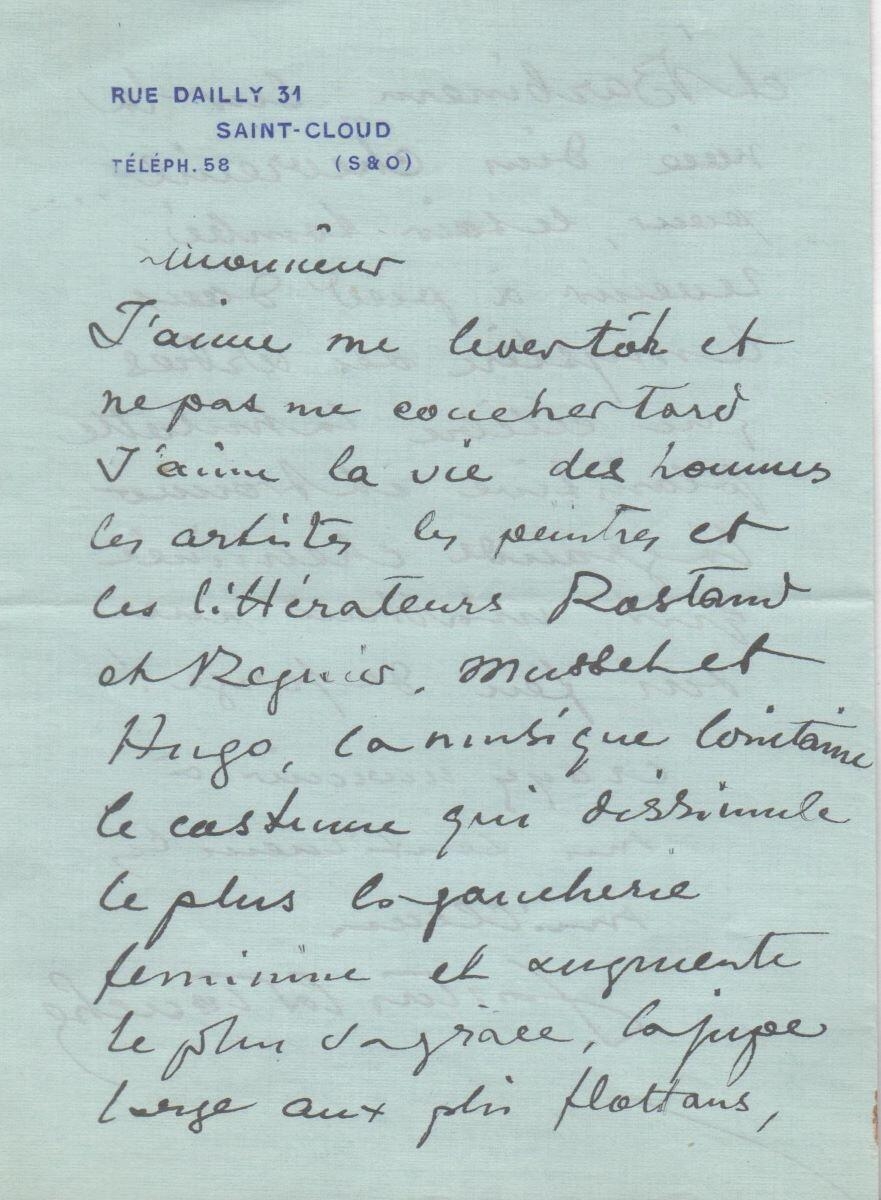 RUE DAILLY 31
SAINT-CLOUD
TÉLÉPH. 58 (S & O)
Monsieur
J'aime me lever tôt et
ne pas me coucher tard,
J'aime la vie des hommes
les artistes les peintres et
les littérateurs Rostand
et Regnier. Musset et
Hugo, la musique lointaine
le costume qui dissimule
le plus la gaucherie
feminine et augmente
le plus sa grâce, la jupe
large aux plis flottans,